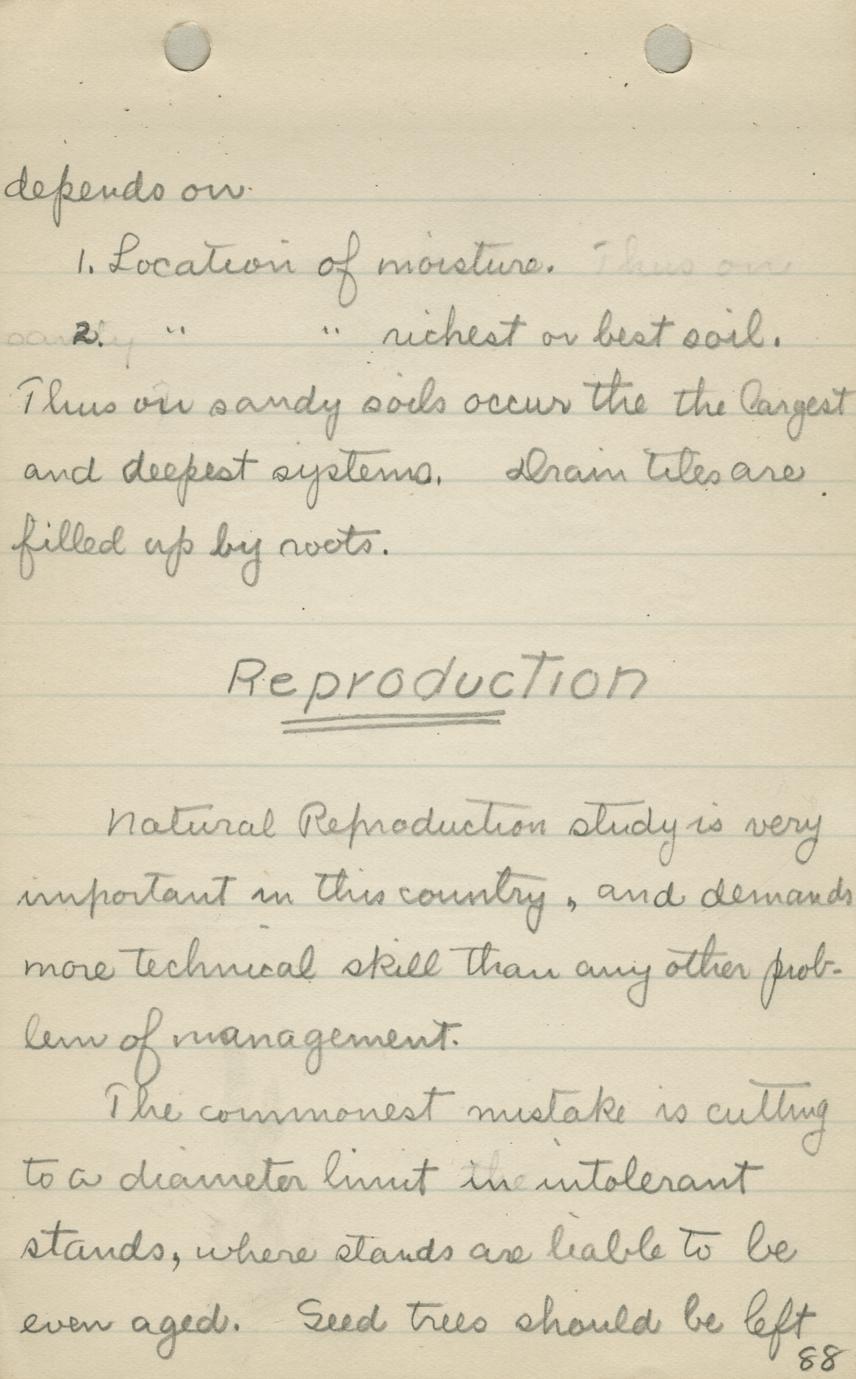 depends on
1. Location of moisture. Thus on
sandy 2. " " richest or best soil.
Thus on sandy soils occur the the largest
and deepest systems. Drain tiles are
filled up by roots.
Reproduction
Natural Reproduction study is very
important in this country, and demands
more technical skill than any other prob-
lem of management.
The commonest mistake is cutting
to a diameter limit in intolerant
stands, where stands are liable to be
even aged. Seed trees should be left
88